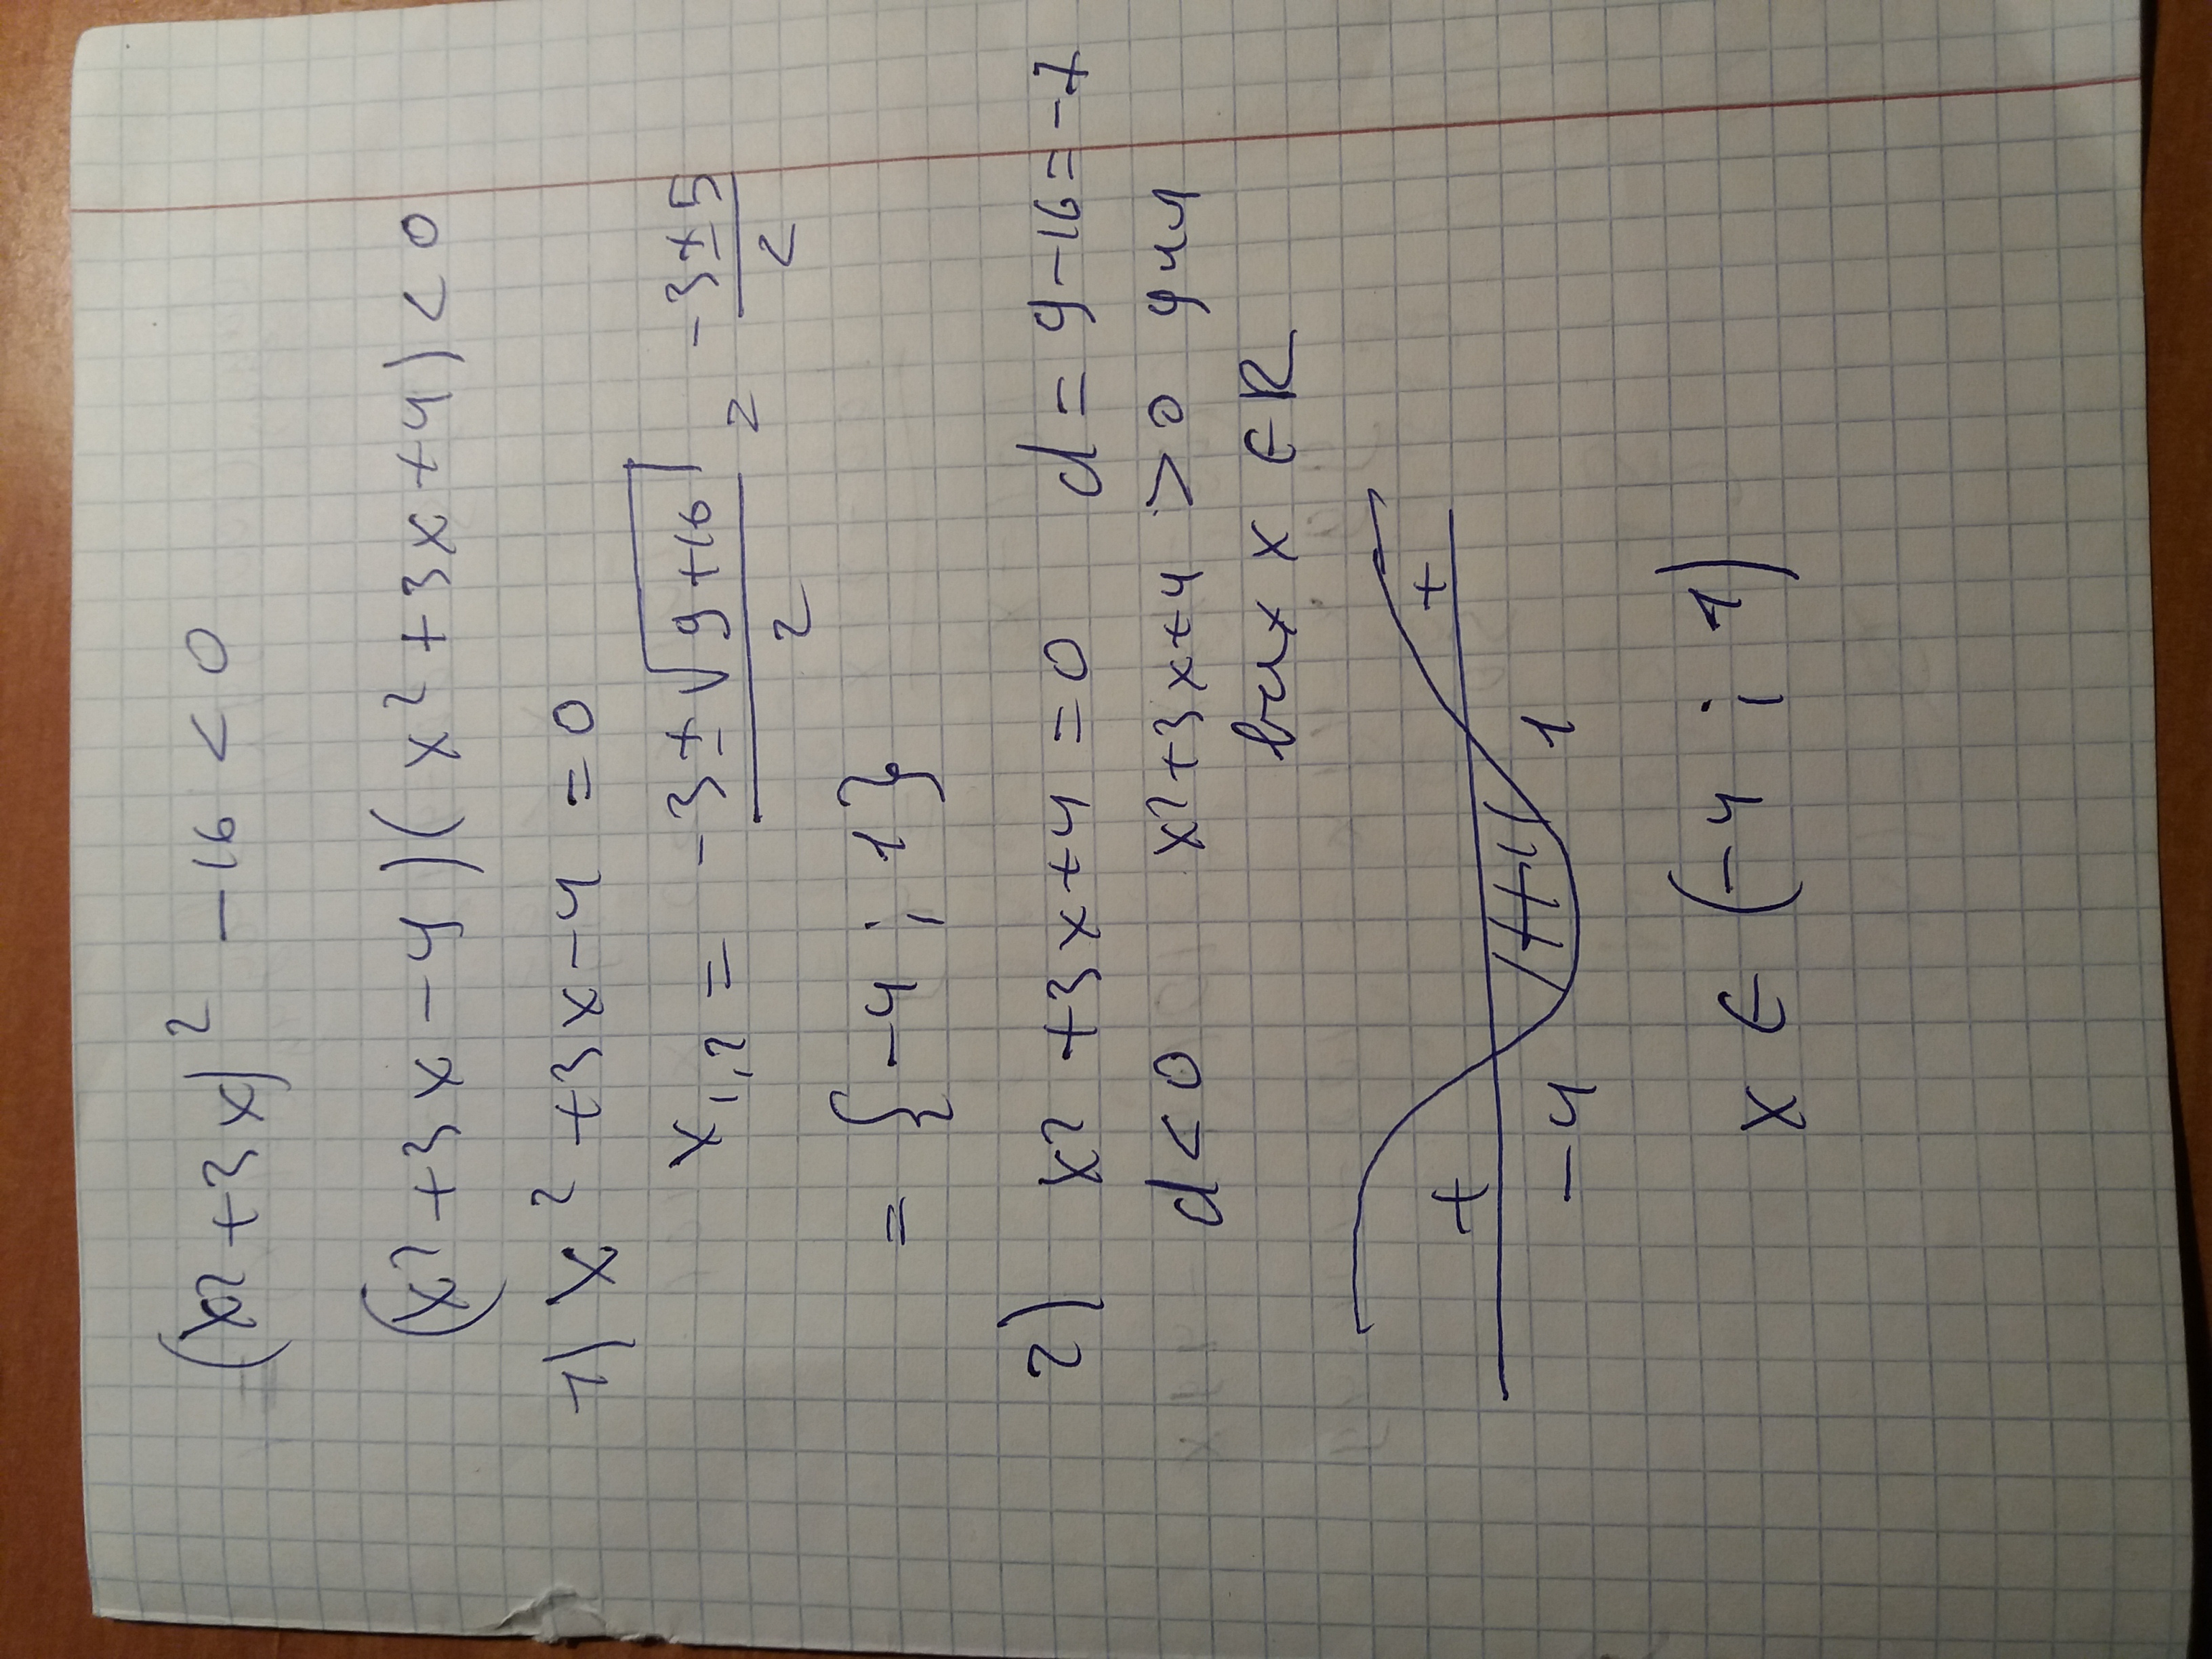 (x² + 3x)² - 16 < 0
(x² + 3x - 4)(x² + 3x + 4) < 0
1) x² + 3x - 4 = 0
x₁,₂ = (-3 ± √(9+16))/2 = (-3 ± 5)/2
= {-4 ; 1}
2) x² + 3x + 4 = 0 d = 9 - 16 = -7
d < 0 x² + 3x + 4 > 0 для
всіх x ∈ R
+ +
-4 1
x ∈ (-4 ; 1)